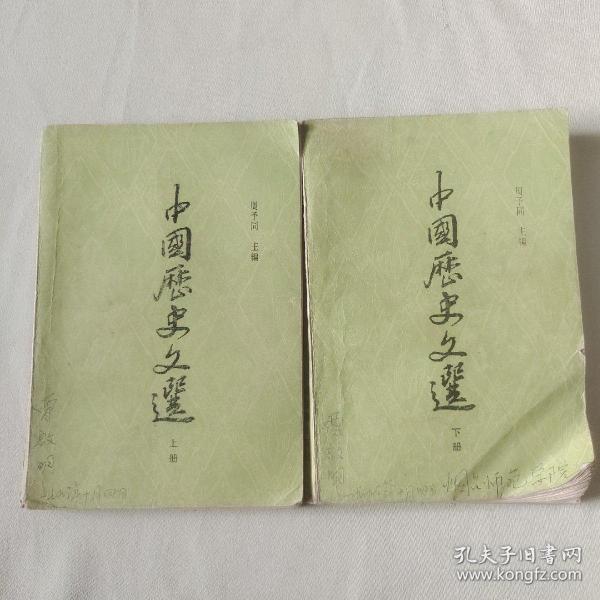 周予同 主编
中國歷史文選
上册
十月四日
周予同 主编
中國歷史文選
下册
师范学院
孔夫子旧书网
www.kongfz.com